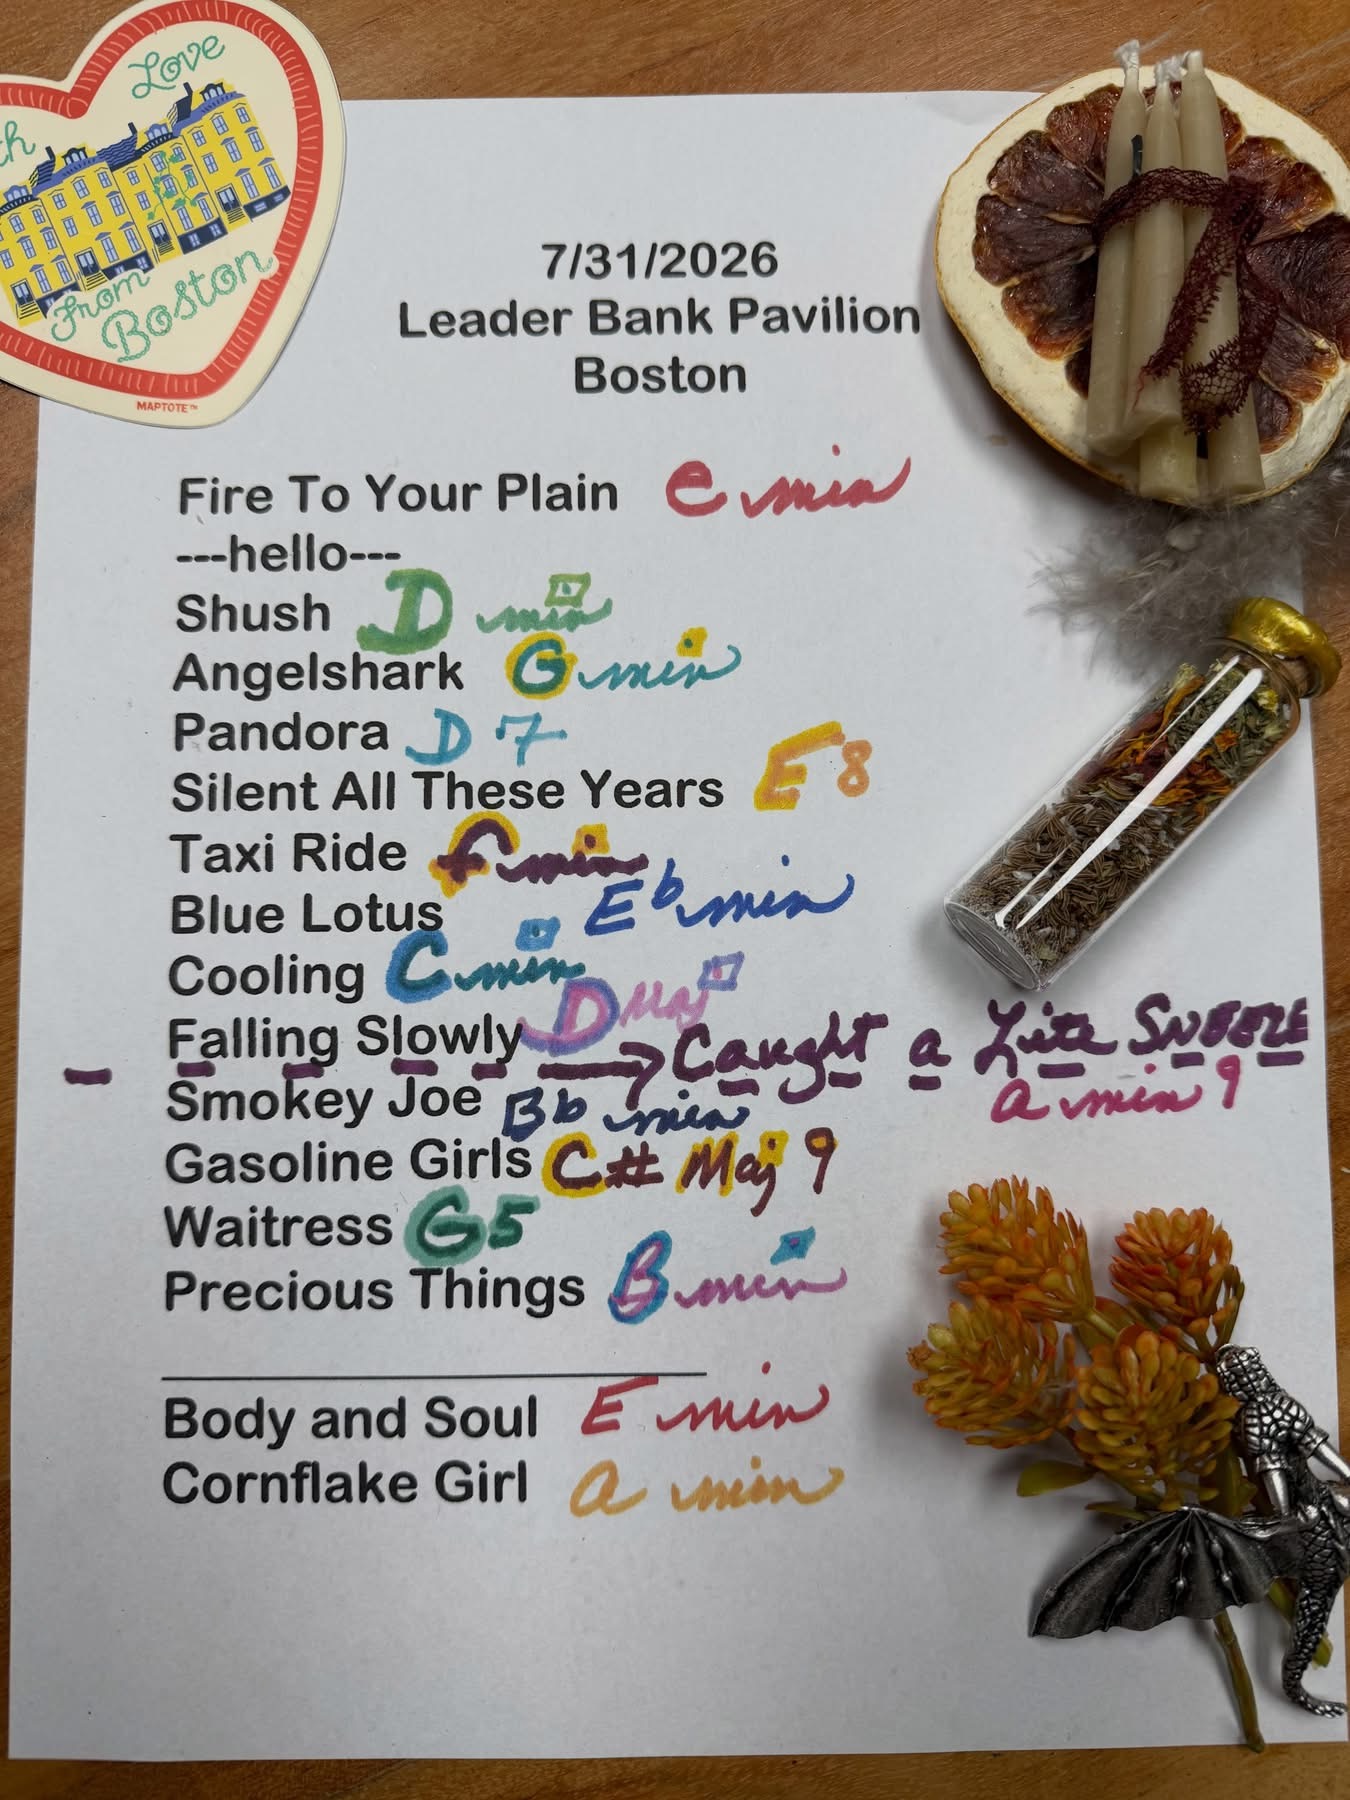 Love
th
From
Boston
MAPTOTE™
7/31/2026
Leader Bank Pavilion
Boston
Fire To Your Plain e min
---hello---
Shush D min
Angelshark G min
Pandora D 7
Silent All These Years E 8
Taxi Ride f min
Blue Lotus Eb min
Cooling C min
Falling Slowly D Maj → Caught a Lite SNEEZE
a min 9
Smokey Joe Bb min
Gasoline Girls C# Maj 9
Waitress G5
Precious Things B min
Body and Soul E min
Cornflake Girl a min